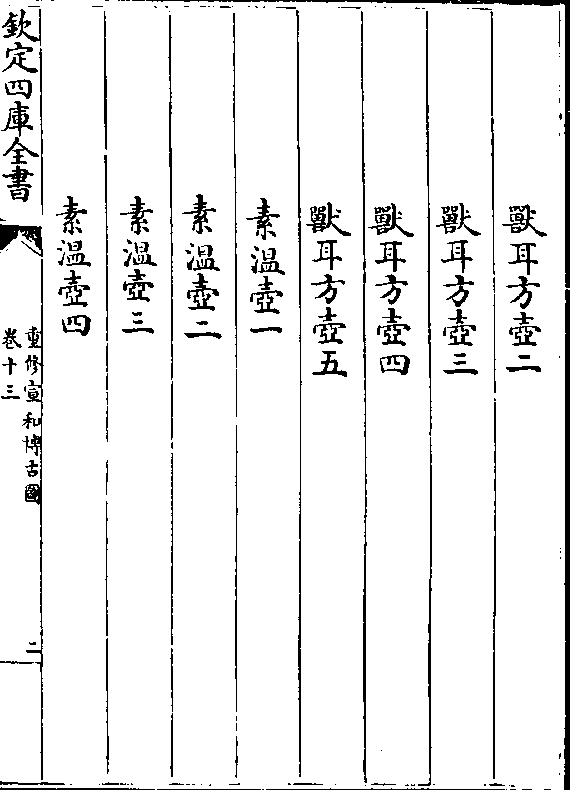 獸耳方壺二
獸耳方壺三
獸耳方壺四
獸耳方壺五
素温壺一
素温壺二
素温壺三
素温壺四
欽定四庫全書
重修宣和博古圖
卷十三
二